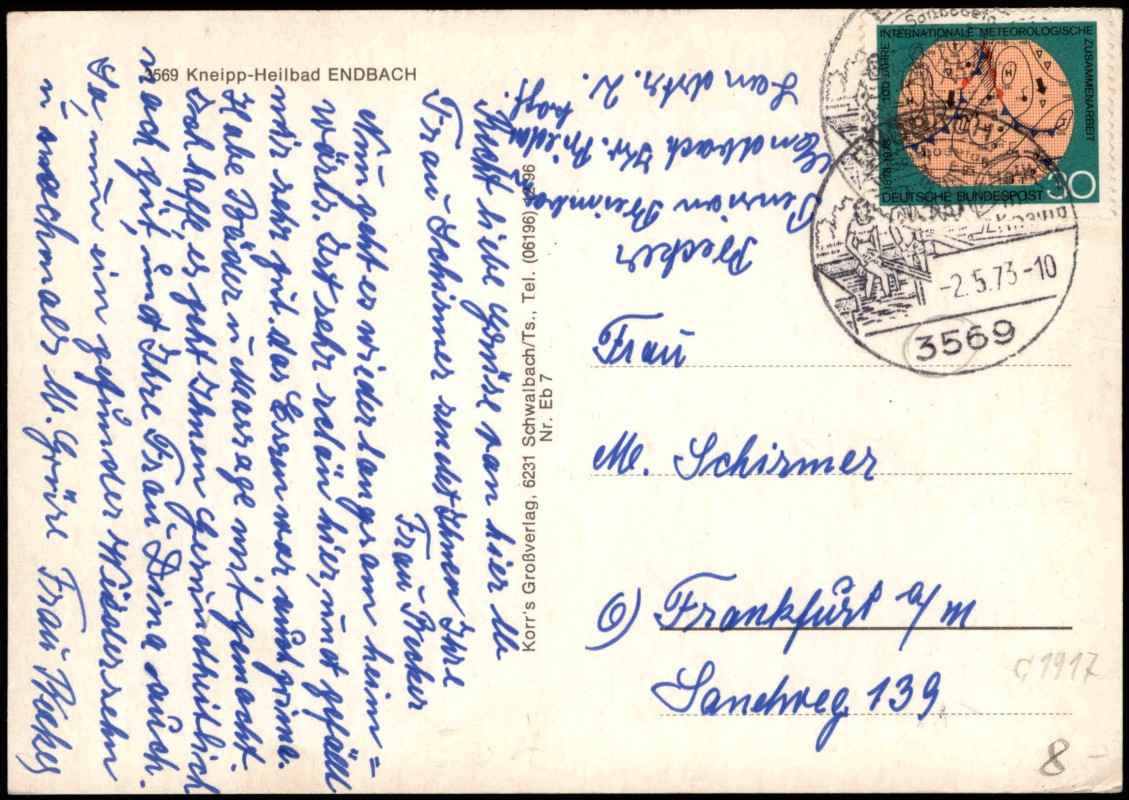 3569 Kneipp-Heilbad ENDBACH
Recht liebe Grüse von hier M.
Frau Schirmer sendet Ihnen Ihre
Frau Becker
Nun geht es wieder langsam heim=
wärts. Ist sehr schön hier, und gefällt
mir sehr gut. das Essen war auch prima.
Habe Bäder u Massage mit gemacht.
Ich hoffe es geht Ihnen Gesundheitlich
noch gut, und Ihre Frau Dina auch.
Ja nun ein gesundes Wiedersehn
u nochmals M. Grüse Frau Becker
Korr's Großverlag, 6231 Schwalbach/Ts., Tel. (06196) 12 96
Nr. Eb 7
Becker
Pension
Endbach Kr.
Landstr. 2.
INTERNATIONALE METEOROLOGISCHE
ZUSAMMENARBEIT
100 JAHRE
1873-1973
DEUTSCHE BUNDESPOST 30
-2.5.73-10
3569
Frau
M. Schirmer
6) Frankfurt a/m
Sandweg 139
1917
8 -